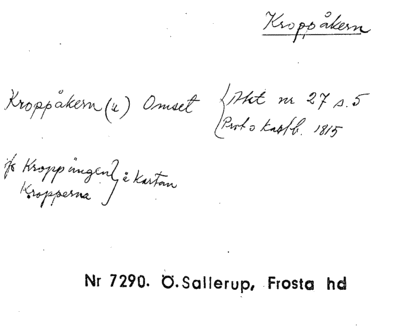 Kroppåkern
Kroppåkern (u) Omset { Akt nr 27 s. 5
Prot o kastb. 1815
jfr Kroppängen } å kartan
Kropperna
Nr 7290. Ö. Sallerup, Frosta hd